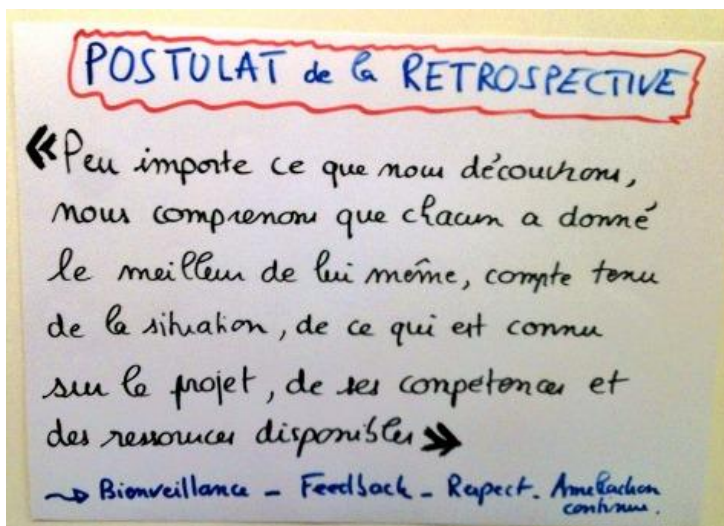 POSTULAT de la RETROSPECTIVE
« Peu importe ce que nous découvrons,
nous comprenons que chacun a donné
le meilleur de lui même, compte tenu
de la situation, de ce qui est connu
sur le projet, de ses compétences et
des ressources disponibles »
~> Bienveillance - Feedback - Respect. Amélioration
continue.